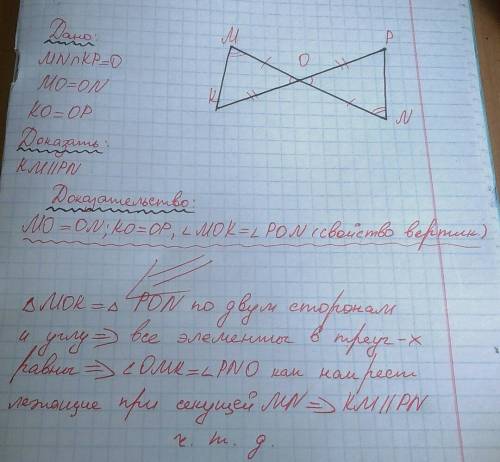 Дано:
MN∩KP=O
MO=ON
KO=OP
Доказать:
KM||PN
M
P
O
K
N
Доказательство:
MO=ON; KO=OP, ∠MOK=∠PON (свойство вертик)
△MOK=△PON по двум сторонам
и углу => все элементы в треуг-х
равны => ∠OMK=∠PNO как накрест
лежащие при секущей MN => KM||PN
ч. т. д.